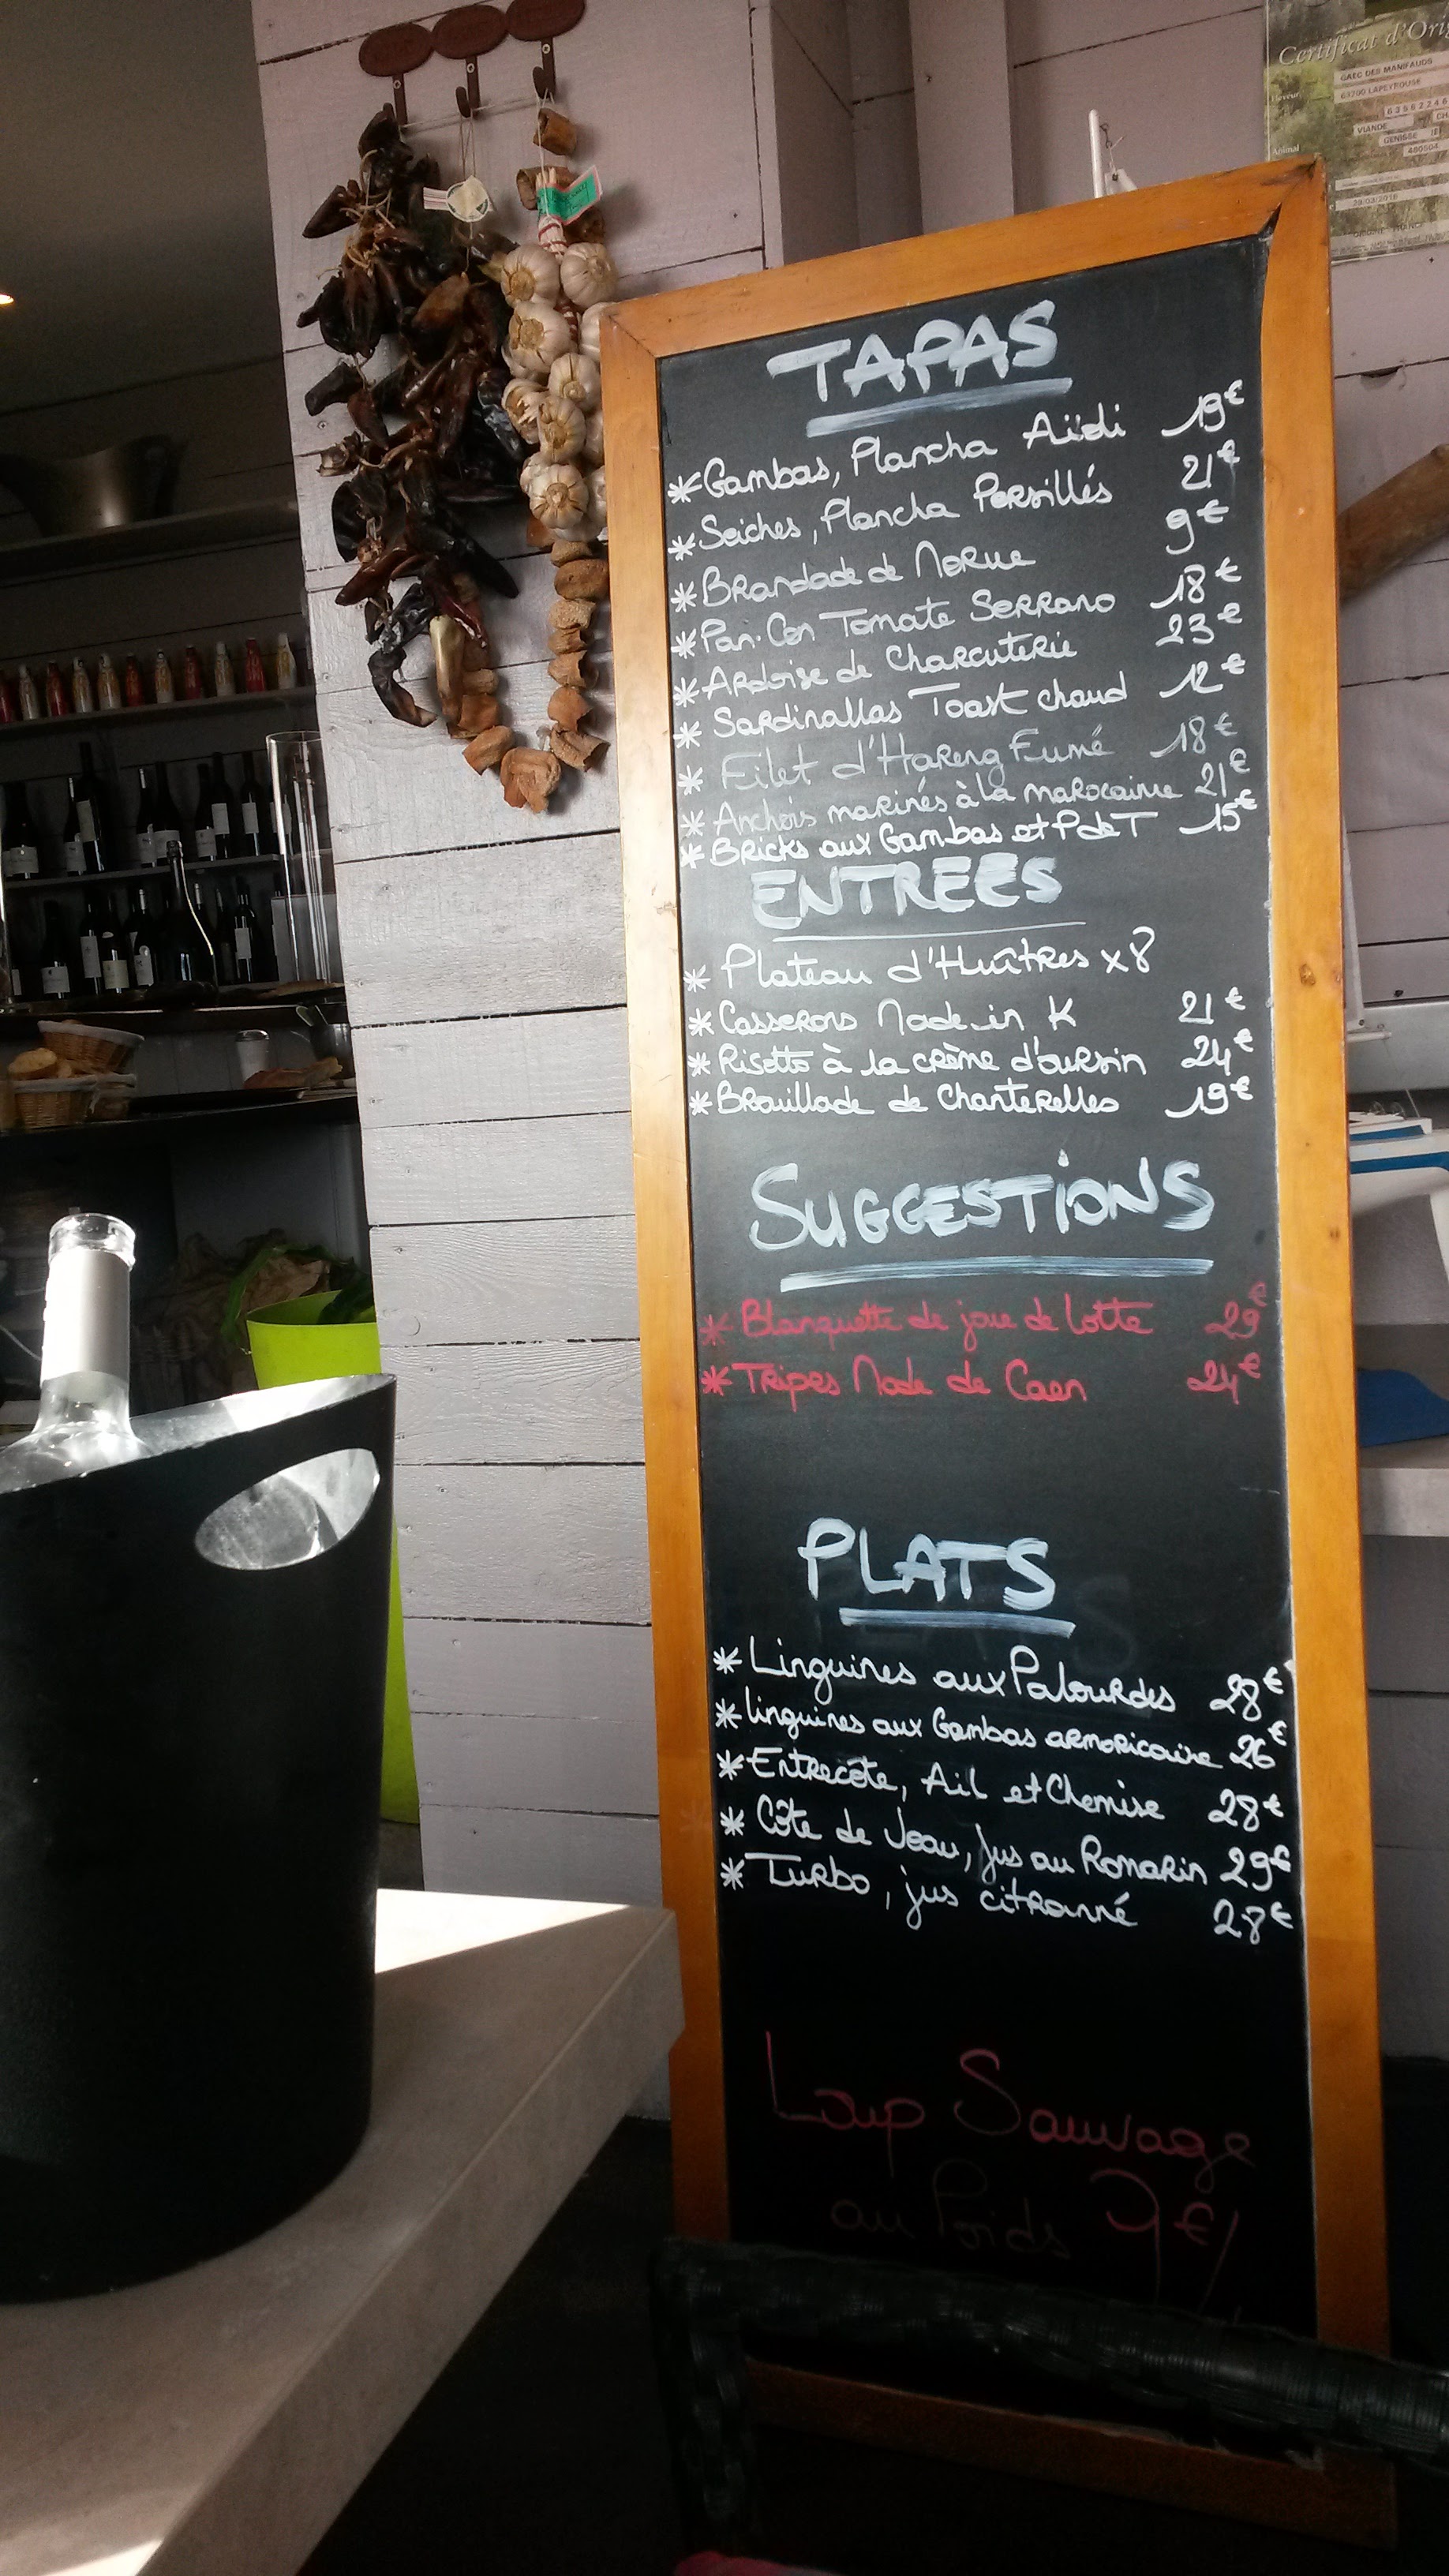 Certificat d'Orig
GAEC DES MANIFAUDS
63700 LAPEYROUSE
VIANDE
GENISSE
TAPAS
*Gambas, Plancha Aïoli 19€
*Seiches, Plancha Persillés 21€
*Brandade de Morue 9€
*Pan.Con Tomate Serrano 18€
*Ardoise de Charcuterie 23€
*Sardinallas Toast chaud 12€
* Filet d'Hareng Fumé 18€
*Anchois marinés à la marocaine 21€
*Bricks aux Gambas et P de T 15€
ENTREES
* Plateau d'Huîtres x8
*Casserons Made in K 21€
*Risotto à la crème d'oursin 24€
*Brouillade de Chanterelles 19€
SUGGESTIONS
* Blanquette de joue de lotte 29€
*Tripes Mode de Caen 24€
PLATS
* Linguines aux Palourdes 28€
*linguines aux Gambas armoricaine 26€
*Entrecôte, Ail et Chemise 28€
* Côte de Veau, Jus au Romarin 29€
* Turbo, jus citronné 28€
Loup Sauvage
au Poids 9€/